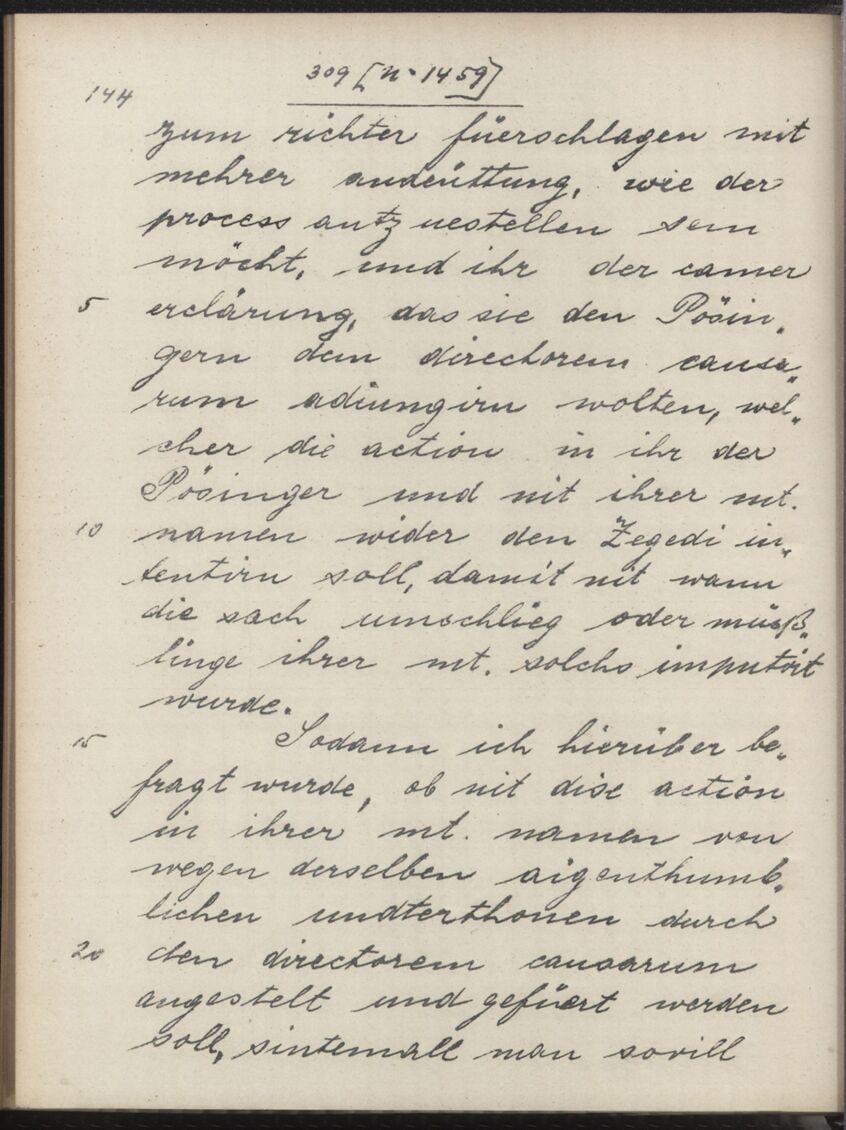 309 [n. 1459]
144
zum richter füerschlagen mit
mehrer andeüttung, wie der
process antzuestellen sein
möcht, und ihr der camer
5 erclärung, das sie den Pösin„
gern dem directorem causa„
rum adiungirn wolten, wel„
cher die action in ihr der
Pösinger und nit ihrer mt.
10 namen wider den Zegedi in„
tentirn soll, damit nit wann
die sach umschlieg oder müß„
linge ihrer mt. solchs imputirt
wurde.
15 Sodann ich hierüber be„
fragt wurde, ob nit dise action
in ihrer mt. namen von
wegen derselben aigenthumb„
lichen undterthonen durch
20 den directorem causarum
angestelt und gefüert werden
soll, sintemall man sovill